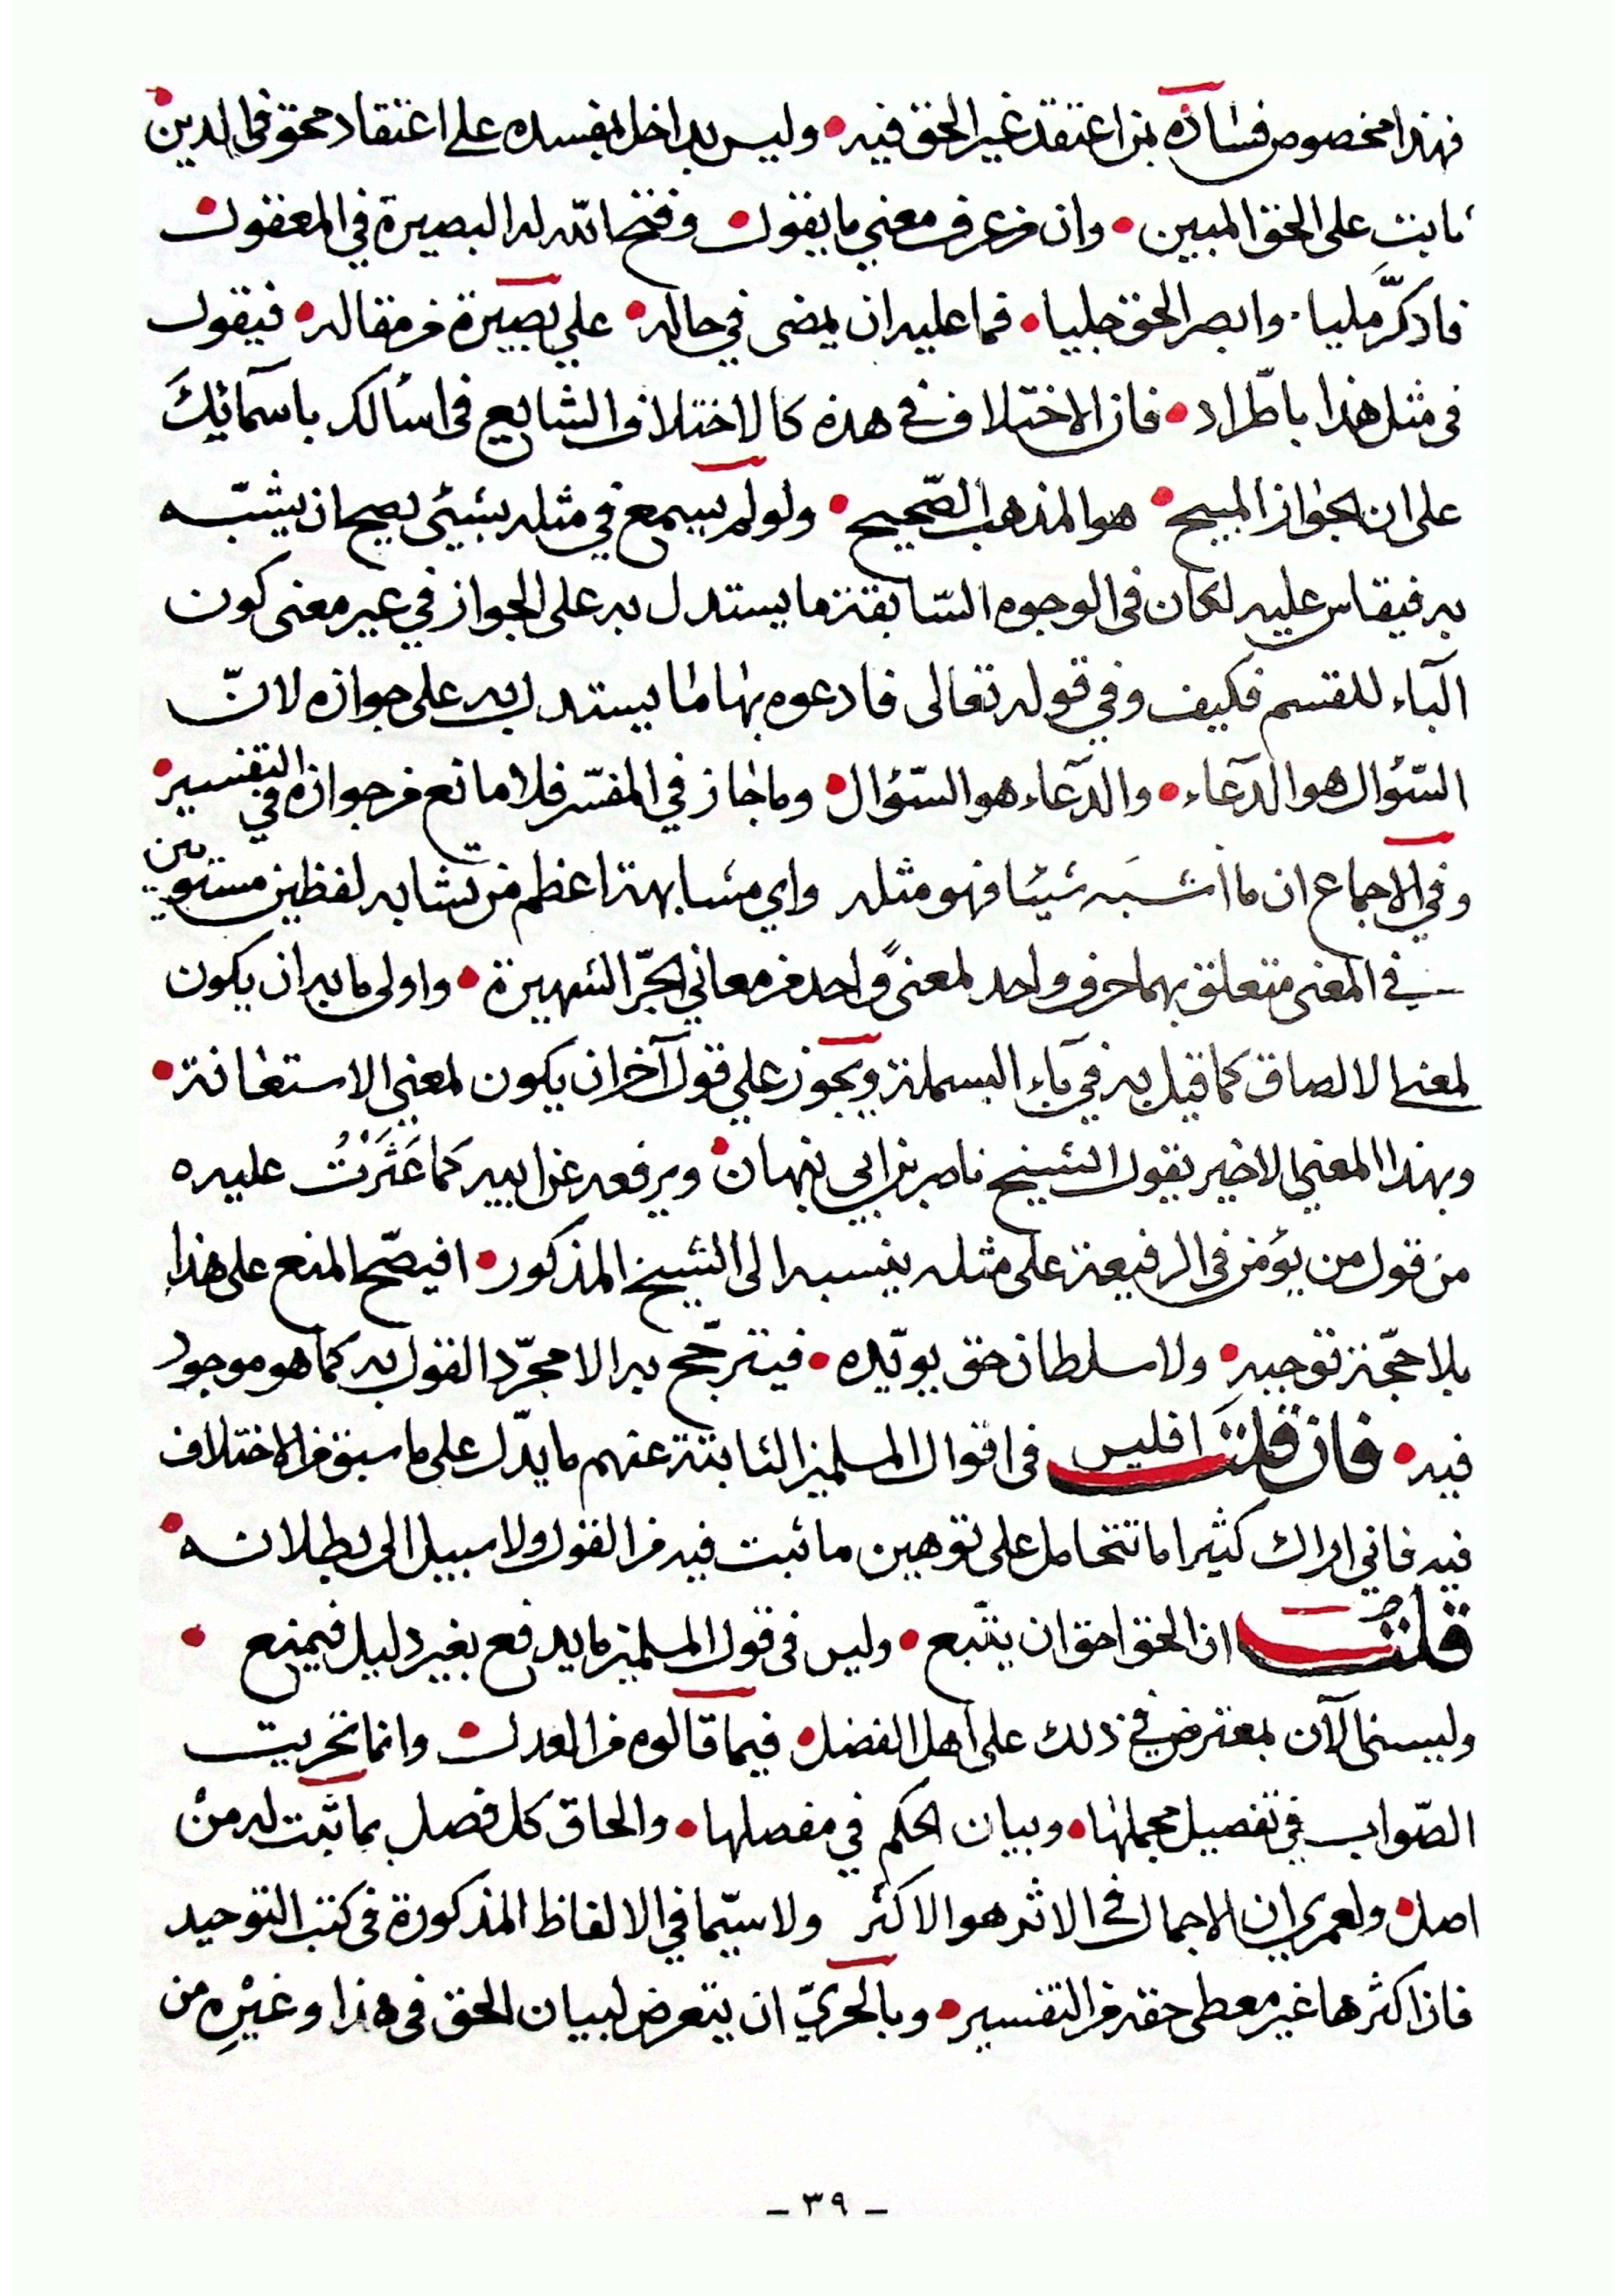 فهذا مخصوص فساده بمن اعتقد غير الحق فيه • وليس بداخل بمفسده على اعتقاد محق في الدين •
ثابت على الحق المبين • وان من عرف معنى ما يقول • وفتح الله له البصيرة في المعقول •
فادكَّر مليا • وابصر الحق جليا • فما عليه ان يمضى في حاله • على بصيرة من مقاله • فيقول
في مثل هذا باطّراد • فان الاختلاف في هذه كالاختلاف الشايع في اسألك باسمائك
على ان الجواز المبيح • هو المذهب الصّحيح • ولو لم يسمع في مثله بشيئ يصح ان يشبّه
به فيقاس عليه لكان في الوجوه السّابقة ما يستدل به على الجواز في غير معنى كون
الباء للقسم فكيف وفي قوله تعالى فادعوه بها ما يستدل به على جوازه لانّ
السّؤال هو الدّعاء • والدّعاء هو السّؤال • وما جاز في المفسّر فلا مانع من جوازه في التفسير •
وفي الاجماع ان ما اشبَه شيئا فهو مثله واي مشابهة اعظم من تشابه لفظين مستويين
في المعنى متعلق بهما حرف واحد لمعنىً واحد من معاني الجرّ الشهيرة • واولى ما به ان يكون
لمعنى الالصاق كما قيل به في باء البسملة ويجوز على قول آخر ان يكون لمعنى الاستعانة •
وبهذا المعنى الاخير يقول الشيخ ناصر بن ابي نبهان • ويرفعه عن ابيه كما عَثَرْتُ عليه
من قول من يؤمن في الرفيعة على مثله ينسبه الى الشيخ المذكور • افيصّح المنع على هذا
بلا حجّة توجبه • ولا سلطان حق يويّده • فيترجّح به الا مجرّد القول به كما هو موجود
فيه • فان قلتَ افليس في اقوال المسلمين الثابتة عنهم ما يدّل على ما سبق من الاختلاف
فيه فاني اراك كثيرا ما تتحامل على توهين ما ثبت فيه من القول ولا سبيل الى بطلانه •
قلتُ ان الحق احق ان يتّبع • وليس في قول المسلمين ما يدفع بغير دليل فيمنع •
ولست الآن بمعترض في ذلك على اهل الفضل • فيما قالوه من العدل • وانما تحريت
الصّواب في تفصيل مجملها • وبيان الحكم في مفصلها • والحاق كل فصل بما ثبت له من
اصل • ولعمري ان الاجمال في الاثر هو الاكثر ولا سيّما في الالفاظ المذكورة في كتب التوحيد
فان اكثرها غير معطى حقه من التفسير • وبالحريّ ان يتعرض لبيان الحق في هذا وغيْرِه من
- ٣٩ -